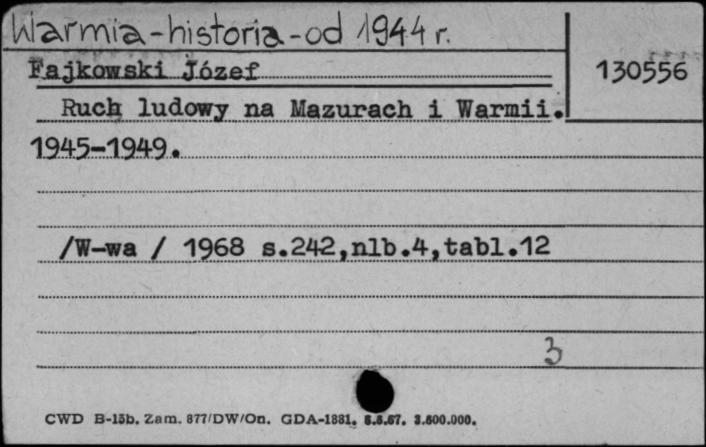 Warmia-historia-od 1944 r.
Fajkowski Józef
130556
Ruch ludowy na Mazurach i Warmii.
1945-1949.
/W-wa / 1968 s.242,nlb.4,tabl.12
3
CWD B-15b. Zam. 877/DW/On. GDA-1881. 8.8.67. 3.500.000.